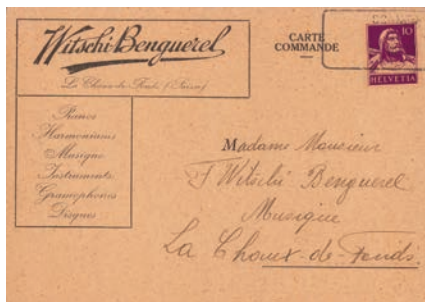 Witschi-Benguerel
La Chaux-de-Fonds (Suisse)
Pianos
Harmoniums
Musique
Instruments
Gramophones
Disques
CARTE
COMMANDE
10
HELVETIA
Madame Monsieur
F Witschi Benguerel
Musique
La Chaux-de-Fonds.